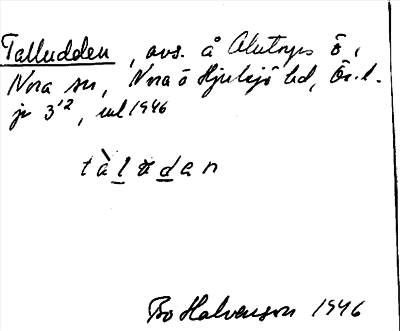 Talludden, avs. å Alntorps ö i
Nora sn, Nora o Hjulsjö hd, Ör. l.
jr 3¹², upl 1946
tàlɯdan
Bo Halvenson 1946